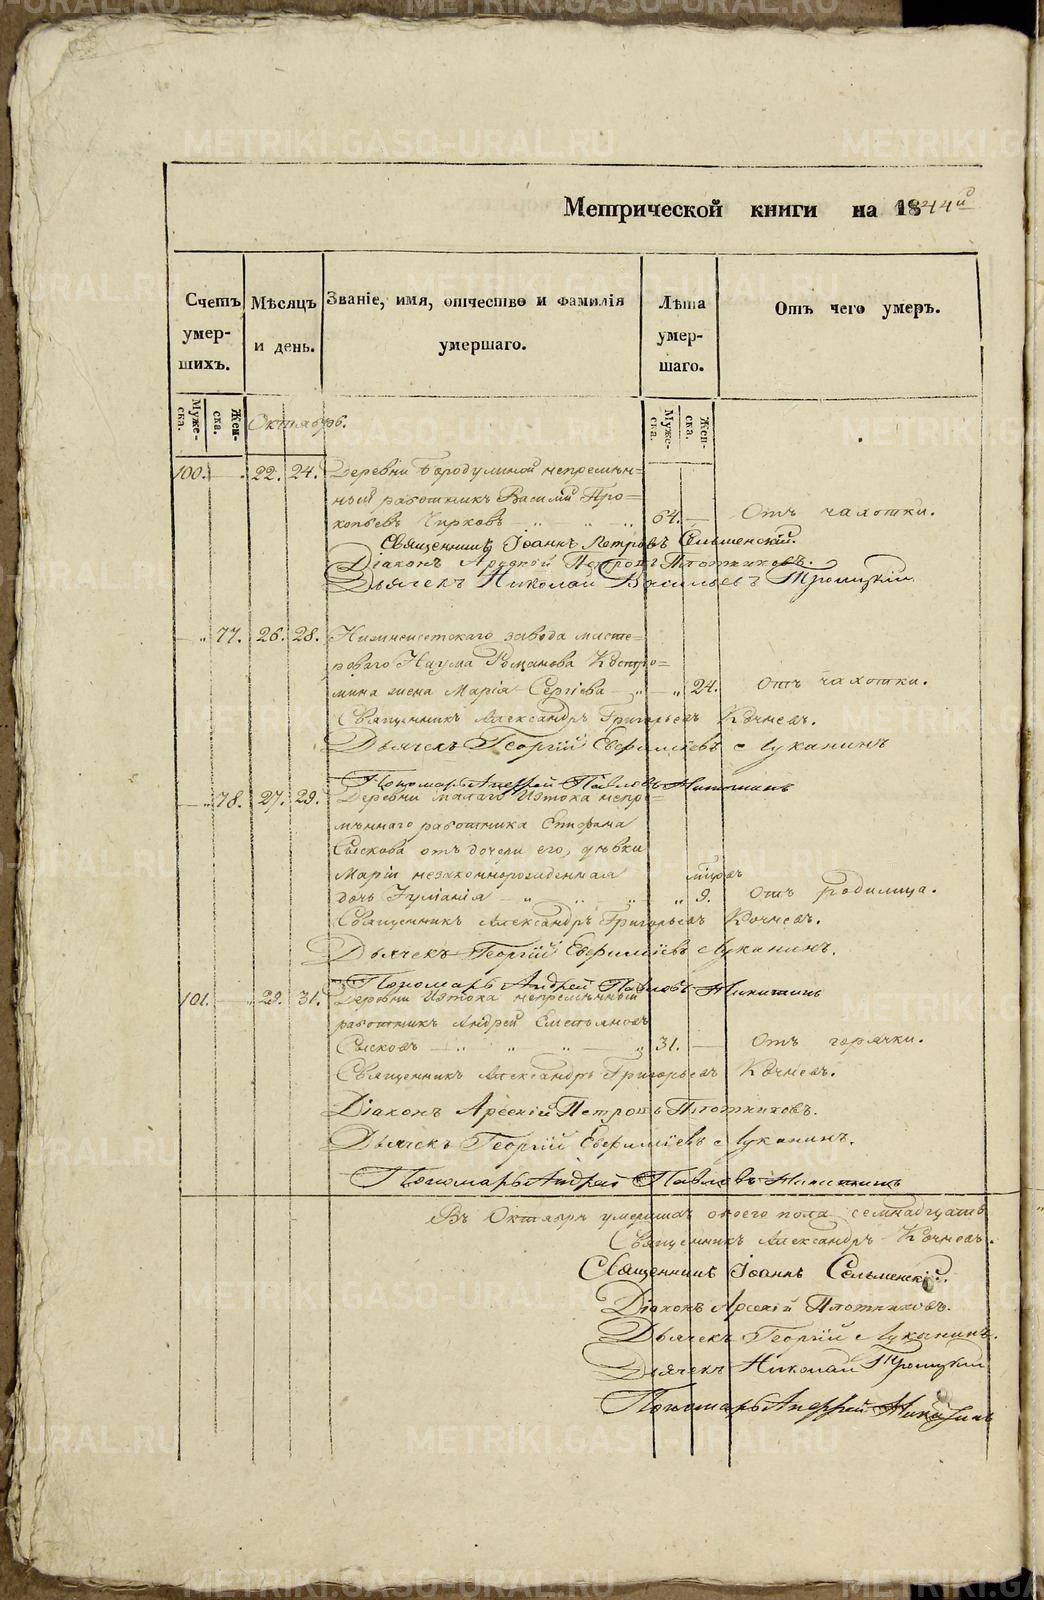 Метрической книги на 1844й
Счетъ умер-шихъ.
Мѣсяцъ и день.
Званіе, имя, отчество и фамилія умершаго.
Лѣта умер-шаго.
Отъ чего умеръ.
Муже-ска.
Жен-ска.
Муже-ска.
Жен-ска.
Октябрь.
100. 22. 24. Деревни Бородулиной непремѣн=
ный работникъ Василій Про=
копьевъ Чирковъ 64. Отъ чахотки.
Священникъ Іоаннъ Петровъ Сельменскій.
Діаконъ Арсеній Петровъ Плотниковъ.
Дьячекъ Николай Васильевъ Троицкій
77. 26. 28. Нижнеисетскаго завода масте=
роваго Наума Романова Костро=
мина жена Марія Сергіева 24. Отъ чахотки.
Священникъ Александръ Григорьевъ Кочневъ.
Дьячекъ Георгій Евфиміевъ Луканинъ
Пономарь Андрей Павловъ Никитинъ
78. 27. 29. Деревни малаго Истока непре=
мѣннаго работника
Сыскова отъ дочери его, дѣвки
Маріи незаконнорожденная
дочь Іуліанія 9. Отъ родимца.
Священникъ Александръ Григорьевъ Кочневъ.
Дьячекъ Георгій Евфиміевъ Луканинъ.
Пономарь Андрей Павловъ Никитинъ
101. 29. 31. Деревни Истока непремѣнный
работникъ Андрей Емельяновъ
Сысковъ 31. Отъ горячки.
Священникъ Александръ Григорьевъ Кочневъ.
Діаконъ Арсеній Петровъ Плотниковъ.
Дьячекъ Георгій Евфиміевъ Луканинъ.
Пономарь Андрей Павловъ Никитинъ
Въ Октябрѣ умершихъ обоего пола семнадцать
Священникъ Александръ Кочневъ.
Священникъ Іоаннъ Сельменскій.
Діаконъ Арсеній Плотниковъ.
Дьячекъ Георгій Луканинъ.
Дьячекъ Николай Троицкій
Пономарь Андрей Никитинъ
METRIKI.GASO-URAL.RU